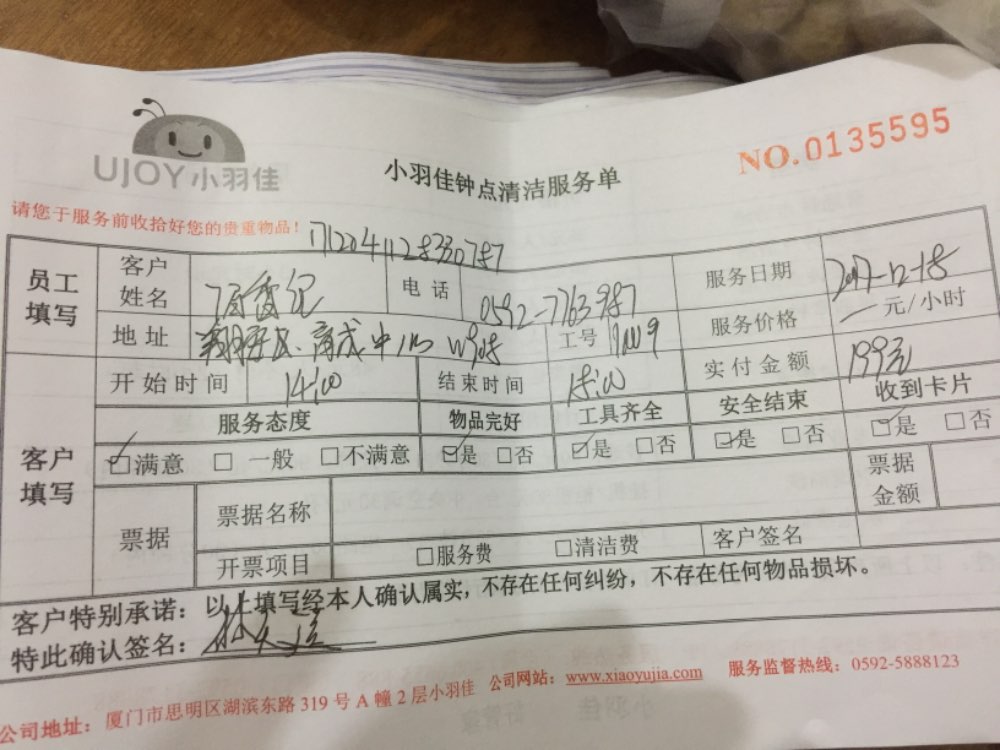 UJOY小羽佳
小羽佳钟点清洁服务单
NO.0135595
请您于服务前收拾好您的贵重物品!
员工填写
客户姓名
电话
0592-7763987
服务日期
2017-12-15
地址
工号
服务价格
一元/小时
开始时间
14:00
结束时间
15:00
实付金额
199元
客户填写
服务态度
物品完好
工具齐全
安全结束
收到卡片
☑满意 □一般 □不满意
☑是 □否
☑是 □否
☑是 □否
☑是 □否
票据
票据名称
票据金额
开票项目
□服务费 □清洁费
客户签名
客户特别承诺:以上填写经本人确认属实,不存在任何纠纷,不存在任何物品损坏。
特此确认签名:
公司地址:厦门市思明区湖滨东路319号A幢2层小羽佳 公司网站:www.xiaoyujia.com 服务监督热线:0592-5888123